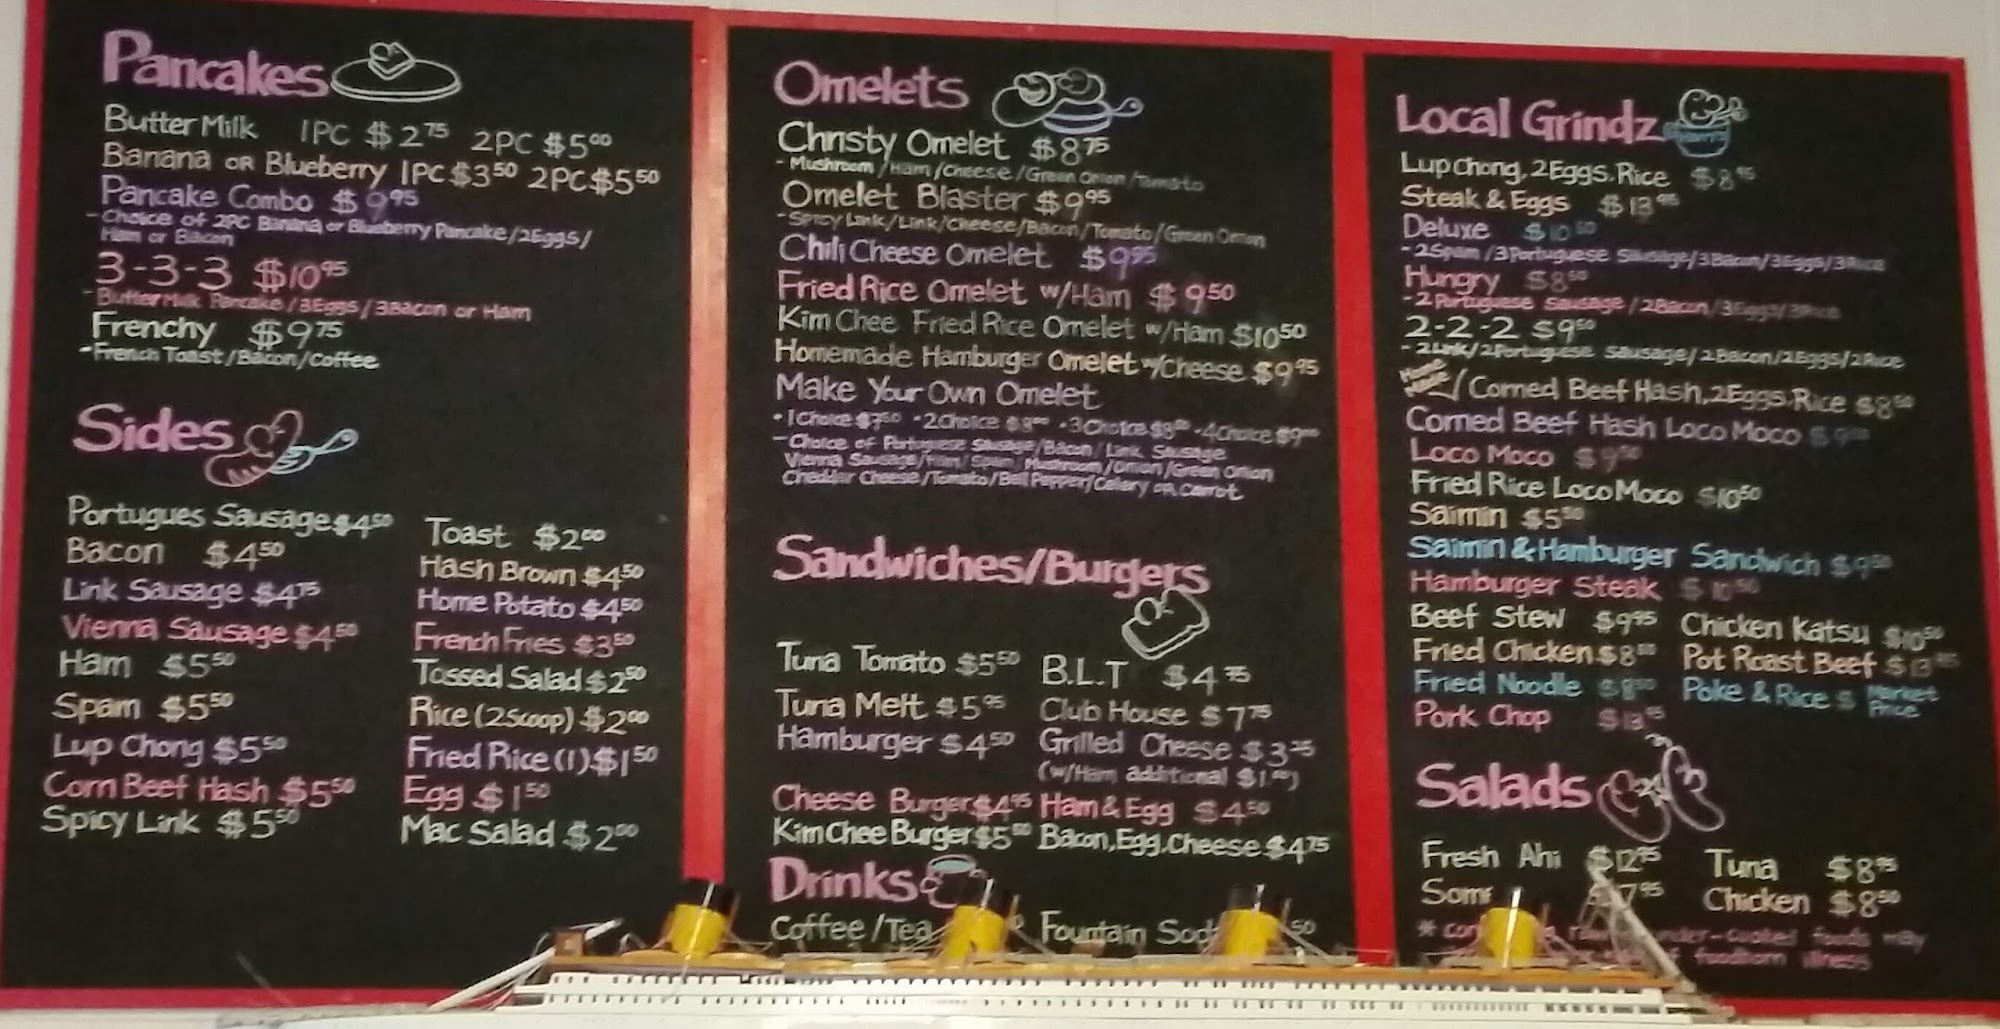 Pancakes
Butter Milk 1PC $2.75 2PC $5.00
Banana OR Blueberry 1PC $3.50 2PC $5.50
Pancake Combo $9.95
- Choice of 2PC Banana or Blueberry Pancake/2Eggs/
Ham or Bacon
3-3-3 $10.95
- Butter Milk Pancake/3Eggs/3Bacon or Ham
Frenchy $9.75
- French Toast/Bacon/Coffee
Sides
Portugues Sausage $4.50
Bacon $4.50
Link Sausage $4.75
Vienna Sausage $4.50
Ham $5.50
Spam $5.50
Lup Chong $5.50
Corn Beef Hash $5.50
Spicy Link $5.50
Toast $2.00
Hash Brown $4.50
Home Potato $4.50
French Fries $3.50
Tossed Salad $2.50
Rice (2Scoop) $2.00
Fried Rice (1) $1.50
Egg $1.50
Mac Salad $2.00
Omelets
Christy Omelet $8.75
- Mushroom/Ham/Cheese/Green Onion/Tomato
Omelet Blaster $9.95
- Spicy Link/Link/Cheese/Bacon/Tomato/Green Onion
Chili Cheese Omelet $9.95
Fried Rice Omelet w/Ham $9.50
Kim Chee Fried Rice Omelet w/Ham $10.50
Homemade Hamburger Omelet w/Cheese $9.95
Make Your Own Omelet
• 1 Choice $7.50 • 2 Choice • 3 Choice • 4 Choice
- Choice of Portuguese Sausage/Bacon/Link Sausage
Vienna Sausage/Ham/Spam/Mushroom/Onion/Green Onion
Cheddar Cheese/Tomato/Bell Pepper/Celery or Carrot
Sandwiches/Burgers
Tuna Tomato $5.50
Tuna Melt $5.95
Hamburger $4.50
Cheese Burger $4.95
Kim Chee Burger
B.L.T $4.75
Club House $7.75
Grilled Cheese
(w/Ham additional
Ham & Egg $4.50
Bacon, Egg, Cheese $4.75
Drinks
Coffee/Tea
Fountain
Local Grindz
Lup Chong, 2Eggs, Rice
Steak & Eggs $13.95
Deluxe
- 2Spam/3Portuguese Sausage/3Bacon/3Eggs/3Rice
Hungry $8.50
- 2 Portuguese Sausage/2Bacon/3Eggs/3Rice
2-2-2 $9.50
- 2Link/2Portuguese Sausage/2Bacon/2Eggs/2Rice
Corned Beef Hash, 2Eggs, Rice $8.50
Corned Beef Hash Loco Moco
Loco Moco
Fried Rice Loco Moco $10.50
Saimin $5.50
Saimin & Hamburger Sandwich $9.50
Hamburger Steak $10.50
Beef Stew $9.95
Fried Chicken
Fried Noodle
Pork Chop
Chicken Katsu $10.50
Pot Roast Beef
Poke & Rice $ Market Price
Salads
Fresh Ahi $12.95
Tuna $8.95
Chicken $8.50
foods may
illness